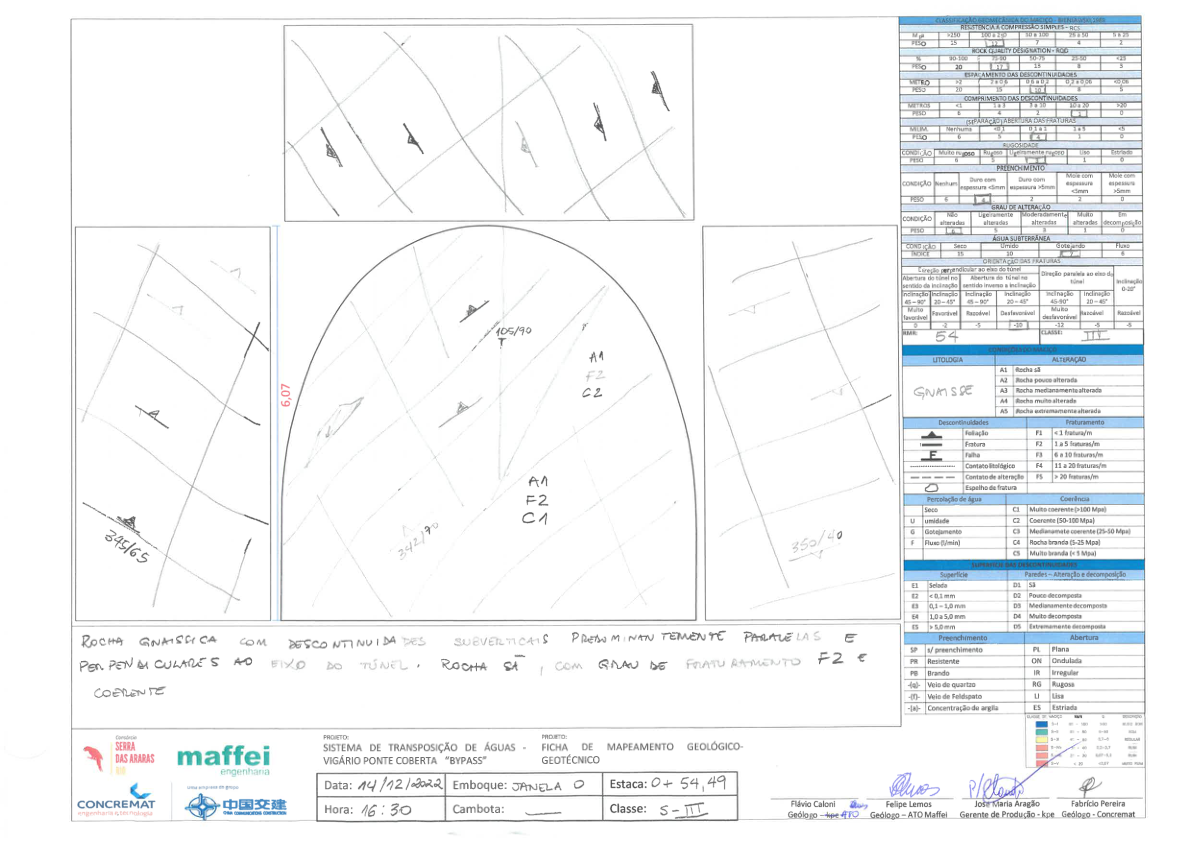 CLASSIFICAÇÃO GEOMECÂNICA DO MACIÇO - BIENIAWSKI, 1989
RESISTÊNCIA A COMPRESSÃO SIMPLES - RCS
MPa >250 100 a 250 50 a 100 25 a 50 5 a 25
PESO 15 12 7 4 2
ROCK QUALITY DESIGNATION - RQD
% 90-100 75-90 50-75 25-50 <25
PESO 20 17 13 8 3
ESPAÇAMENTO DAS DESCONTINUIDADES
METRO >2 2 a 0,6 0,6 a 0,2 0,2 a 0,06 <0,06
PESO 20 15 10 8 5
COMPRIMENTO DAS DESCONTINUIDADES
METROS <1 1 a 3 3 a 10 10 a 20 >20
PESO 6 4 2 1 0
(SEPARAÇÃO) ABERTURA DAS FRATURAS
MILIM. Nenhuma <0,1 0,1 a 1 1 a 5 <5
PESO 6 5 4 1 0
RUGOSIDADE
CONDIÇÃO Muito rugoso Rugoso Ligeiramente rugoso Liso Estriado
PESO 6 5 3 1 0
PREENCHIMENTO
CONDIÇÃO Nenhum Duro com espessura <5mm Duro com espessura >5mm Mole com espessura <5mm Mole com espessura >5mm
PESO 6 4 2 2 0
GRAU DE ALTERAÇÃO
CONDIÇÃO Não alteradas Ligeiramente alteradas Moderadamente alteradas Muito alteradas Em decomposição
PESO 6 5 3 1 0
ÁGUA SUBTERRÂNEA
CONDIÇÃO Seco Úmido Gotejando Fluxo
ÍNDICE 15 10 7
ORIENTAÇÃO DAS FRATURAS
Direção perpendicular ao eixo do túnel Direção paralela ao eixo do túnel Inclinação 0-20°
Abertura do túnel no sentido da inclinação Abertura do túnel no sentido inverso a inclinação
Inclinação 45 – 90° Inclinação 20 – 45° Inclinação 45 – 90° Inclinação 20 – 45° Inclinação 45-90° Inclinação 20 – 45°
Muito favorável Favorável Razoável Desfavorável Muito desfavorável Razoável Razoável
0 -2 -5 -10 -12 -5
RMR: 54 CLASSE: III
LITOLOGIA ALTERAÇÃO
GNAISSE
A1 Rocha sã
A2 Rocha pouco alterada
A3 Rocha medianamente alterada
A4 Rocha muito alterada
A5 Rocha extremamente alterada
Descontinuidades Fraturamento
Foliação F1 < 1 fratura/m
Fratura F2 1 a 5 fraturas/m
F Falha F3 6 a 10 fraturas/m
Contato litológico F4 11 a 20 fraturas/m
Contato de alteração F5 > 20 fraturas/m
Espelho de fratura
Percolação de água Coerência
Seco C1 Muito coerente (>100 Mpa)
U umidade C2 Coerente (50-100 Mpa)
G Gotejamento C3 Medianamete coerente (25-50 Mpa)
F Fluxo (l/min) C4 Rocha branda (5-25 Mpa)
C5 Muito branda (< 5 Mpa)
SUPERFÍCIE DAS DESCONTINUIDADES
Superfície Paredes – Alteração e decomposição
E1 Selada D1 Sã
E2 < 0,1 mm D2 Pouco decomposta
E3 0,1 – 1,0 mm D3 Medianamente decomposta
E4 1,0 a 5,0 mm D4 Muito decomposta
E5 > 5,0 mm D5 Extremamente decomposta
Preenchimento Abertura
SP s/ preenchimento PL Plana
PR Resistente ON Ondulada
PB Brando IR Irregular
-(q)- Veio de quartzo RG Rugosa
-(f)- Veio de Feldspato LI Lisa
-(a)- Concentração de argila ES Estriada
6,07
105/90
T
A1
F2
C2
A1
F2
C1
345/65
342/70
350/40
ROCHA GNAISSICA COM DESCONTINUIDADES SUBVERTICAIS PREDOMINANTEMENTE PARALELAS E
PERPENDICULARES AO EIXO DO TÚNEL. ROCHA SÃ, COM GRAU DE FRATURAMENTO F2 E
COERENTE
Consórcio
SERRA
DAS ARARAS
maffei
engenharia
CONCREMAT
engenharia
uma empresa do grupo
中国交建
CHINA COMMUNICATIONS CONSTRUCTION
PROJETO:
SISTEMA DE TRANSPOSIÇÃO DE ÁGUAS -
VIGÁRIO A CÉU ABERTO "BYPASS"
PROJETO:
FICHA DE MAPEAMENTO GEOLÓGICO-
GEOTÉCNICO
Data: 14/12/2022 Emboque: JANELA O Estaca: 0+54,49
Hora: 16:30 Cambota: — Classe: S-III
Flávio Caloni Felipe Lemos José Maria Aragão Fabrício Pereira
Geólogo - kpe ATO Geólogo – ATO Maffei Gerente de Produção - kpe Geólogo - Concremat